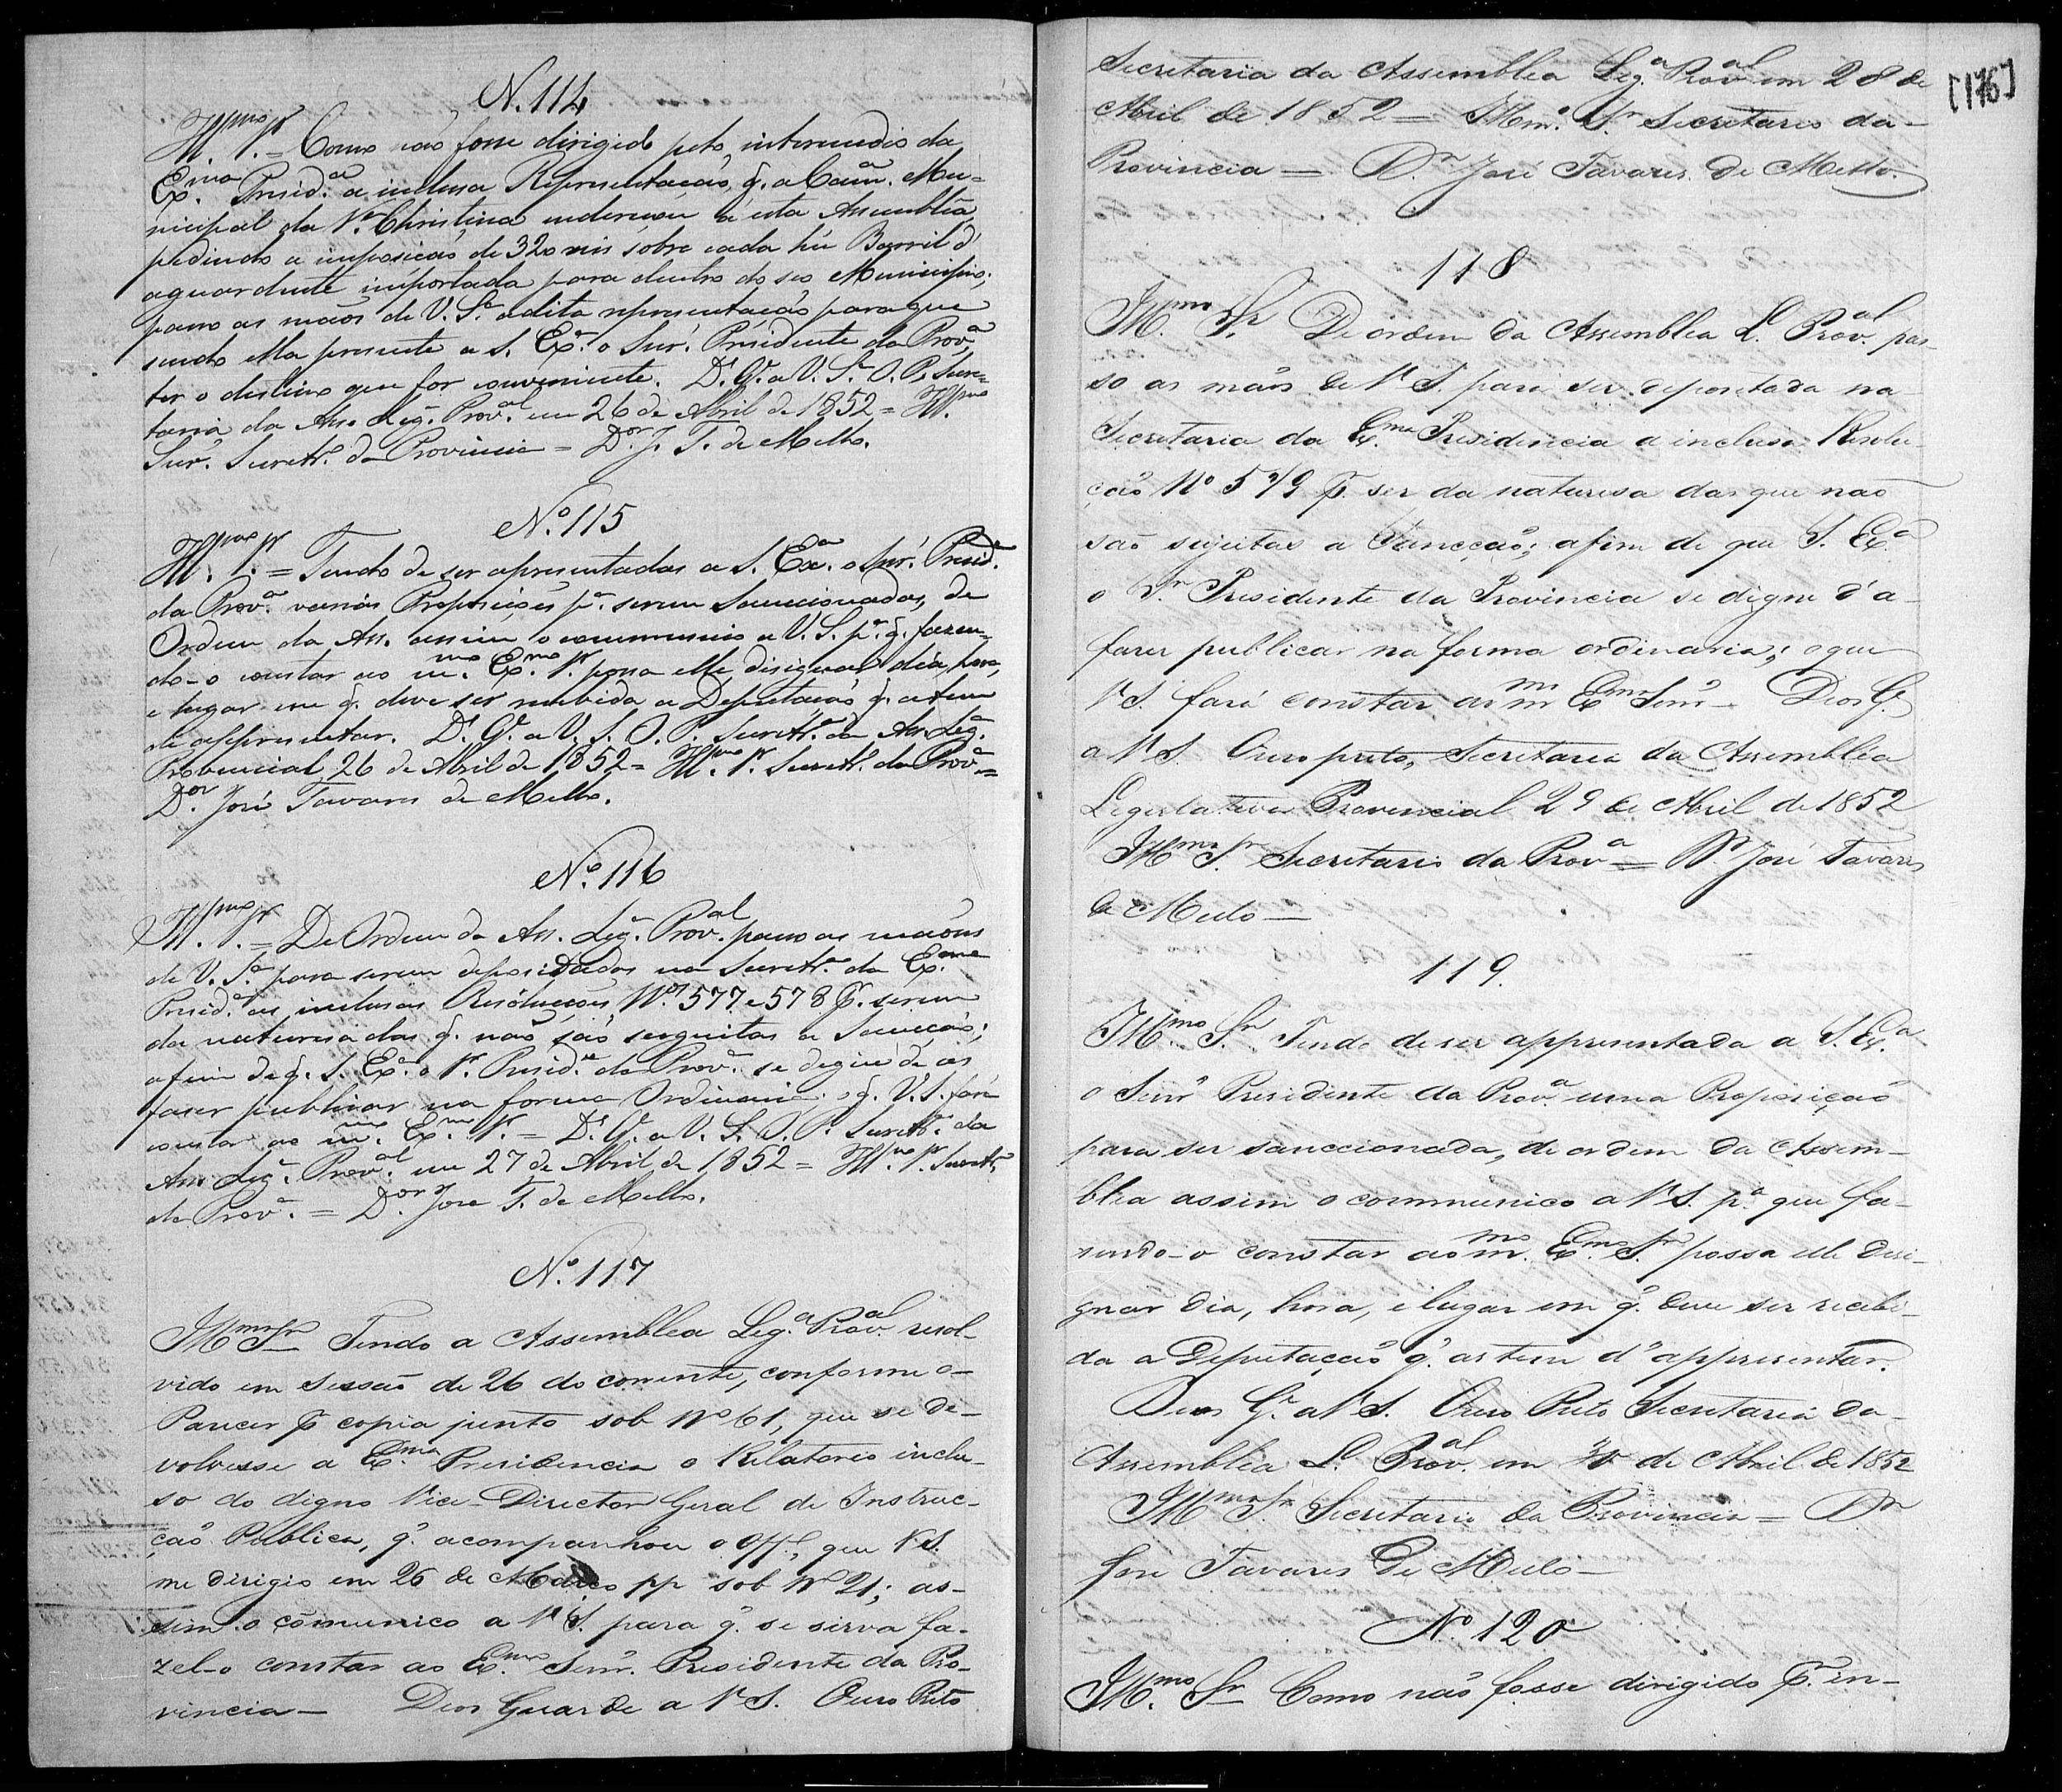 N. 114
Ill.mo Sr. = Como não fosse dirigido pelo intermedio da
Ex.ma Presid.a a inclusa Representação, q. a Cam.a Mu=
nicipal da V.a Christina endereçou á esta Assemblea,
pedindo a imposição de 320 reis sobre cada hũ Barril d'
aguardente importada para dentro do seo Municipio;
passo as mãos de V. S.a a dita representação para que
sendo ella presente a S. Ex.a o Snr. Presidente da Prov.a
ter o destino que for conveniente. D.s G.e a V. S.a O. P. Secre=
taria da Ass. Leg. Prov.al em 26 de Abril de 1852 = Ill.mo
Snr. Secret.o da Provincia = D.or J. T. de Mello.
N.o 115
Ill.mo Sr. = Tendo de ser apresentadas a S. Ex.a o Snr. Presid.e
da Prov.a varias Proposições p.a serem Sanccionadas, de
Ordem da Ass. assim o communico a V. S. p.a q. fasen=
do-o constar ao m.mo Ex.mo Sr. possa elle designar dia, hora,
e lugar em q. deve ser recebida a Deputação q. as tem
de appresentar. D.s G.e a V. S. O. P. Secret.a da Ass. Leg.
Provincial 26 de Abril de 1852 = Ill.mo Sr. Secret.o da Prov.a =
D.or José Tavares de Mello.
N.o 116
Ill.mo Sr. = De Ordem da Ass. Leg. Prov.al passo as mãos
de V. S.a para serem depositadas na Secret.a da Ex.ma
Presid.a as inclusas Resoluções N.os 577 e 578 p.r serem
da naturesa das q. não são sugeitas a Sancção;
afim de q. S. Ex.a o Sr. Presid.e da Prov.a se digne de as
faser publicar na forma Ordinaria; o q. V. S. fará
constar ao m.mo Ex.mo Sr. = D.s G.e a V. S. O. P. Secret.a da
Ass. Leg. Prov.al em 27 de Abril de 1852 = Ill.mo Sr. Secret.o
da Prov.a = D.or Jose T. de Mello.
N.o 117
Ill.mo Sr. Tendo a Assemblea Leg.a Prov.al resol-
vido em sessão de 26 do corrente, conforme o
Parecer p.r copia junto sob N.o 61, que se de-
volvesse a Ex.ma Presidencia o Relatorio inclu-
so do digno Vice-Director Geral de Instruc-
ção Publica, q. acompanhou o off.o, que V. S.
me dirigio em 26 de Março pp sob N.o 21; as-
sim o cõmunico a V. S. para q. se sirva fa-
zel-o constar ao Ex.mo Senr. Presidente da Pro-
vincia — Deos Guarde a V. S. Ouro Preto
[176]
Secretaria da Assemblea Leg.a Prov.al em 28 de
Abril de 1852 = Illm.o Sr. Secretario da
Provincia = D.r José Tavares de Mello.
118
Ill.mo Sr. De ordem da Assemblea L. Prov.al pas-
so as mãos de V. S. para ser depositada na
Secretaria da Ex.ma Presidencia a inclusa Resolu-
ção N.o 579 p.r ser da naturesa das que não
são sujeitas a Sancção; afim de que S. Ex.a
o Sr. Presidente da Provincia se digne d'a
fazer publicar na forma ordinaria; o que
V. S. fará constar ao m.mo Ex.mo Senr. Deos G.e
a V. S. Ouro preto, Secretaria da Assemblea
Legislativa Provincial 29 de Abril de 1852
Ill.mo Sr. Secretario da Prov.a = D.r José Tavares
de Mello —
119.
Ill.mo Sr. Tendo de ser appresentada a S. Ex.a
o Senr. Presidente da Prov.a uma Proposição
para ser sanccionada, de ordem da Assem-
blea assim o communico a V. S. p.a que fa-
sendo-o constar ao m.mo Ex.mo Sr. possa elle desi-
gnar dia, hora, e lugar em q. deve ser recebi-
da a Deputação q. as tem d'appresentar.
Deos G.e a V. S. Ouro Preto Secretaria da
Assemblea L. Prov.al em 30 de Abril de 1852
Ill.mo Sr. Secretario da Provincia = D.r
José Tavares de Mello —
N.o 120
Ill.mo Sr. Como não fosse dirigido p.r in-